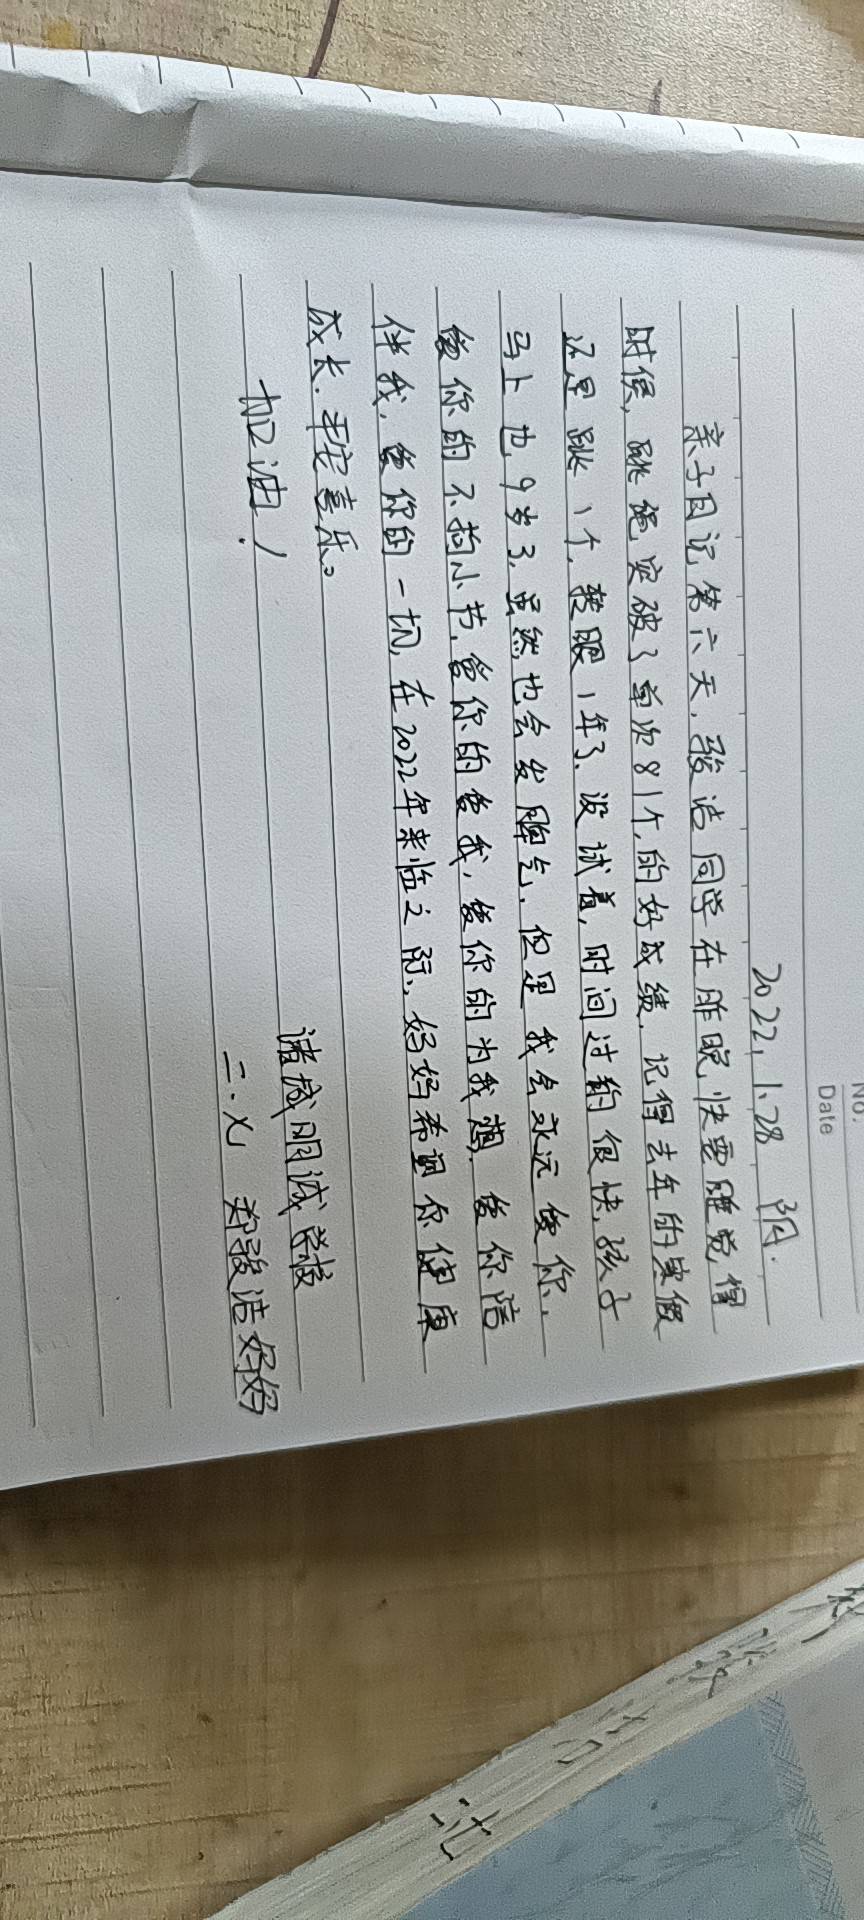 No.
Date
2022.1.28 阴.
亲子日记第六天,骏浩同学在昨晚快要睡觉得
时候,跳绳突破了单次81个,的好成绩,记得去年的寒假
还是跳1个,转眼1年了,没试着,时间过的很快,孩子
马上也9岁了,虽然也会发脾气,但是我会永远爱你,
爱你的不拘小节,爱你的爱我,爱你的为我想,爱你陪
伴我,爱你的一切,在2022年来临之际,妈妈希望你健康
成长,平安喜乐。
加油!
诸城明诚学校
二.乂 郑骏浩妈妈
郑骏浩